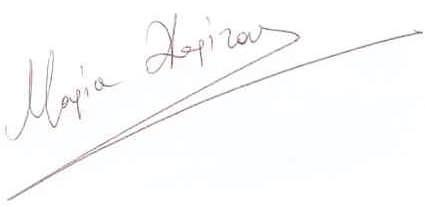 Μαρία Χαρίτου